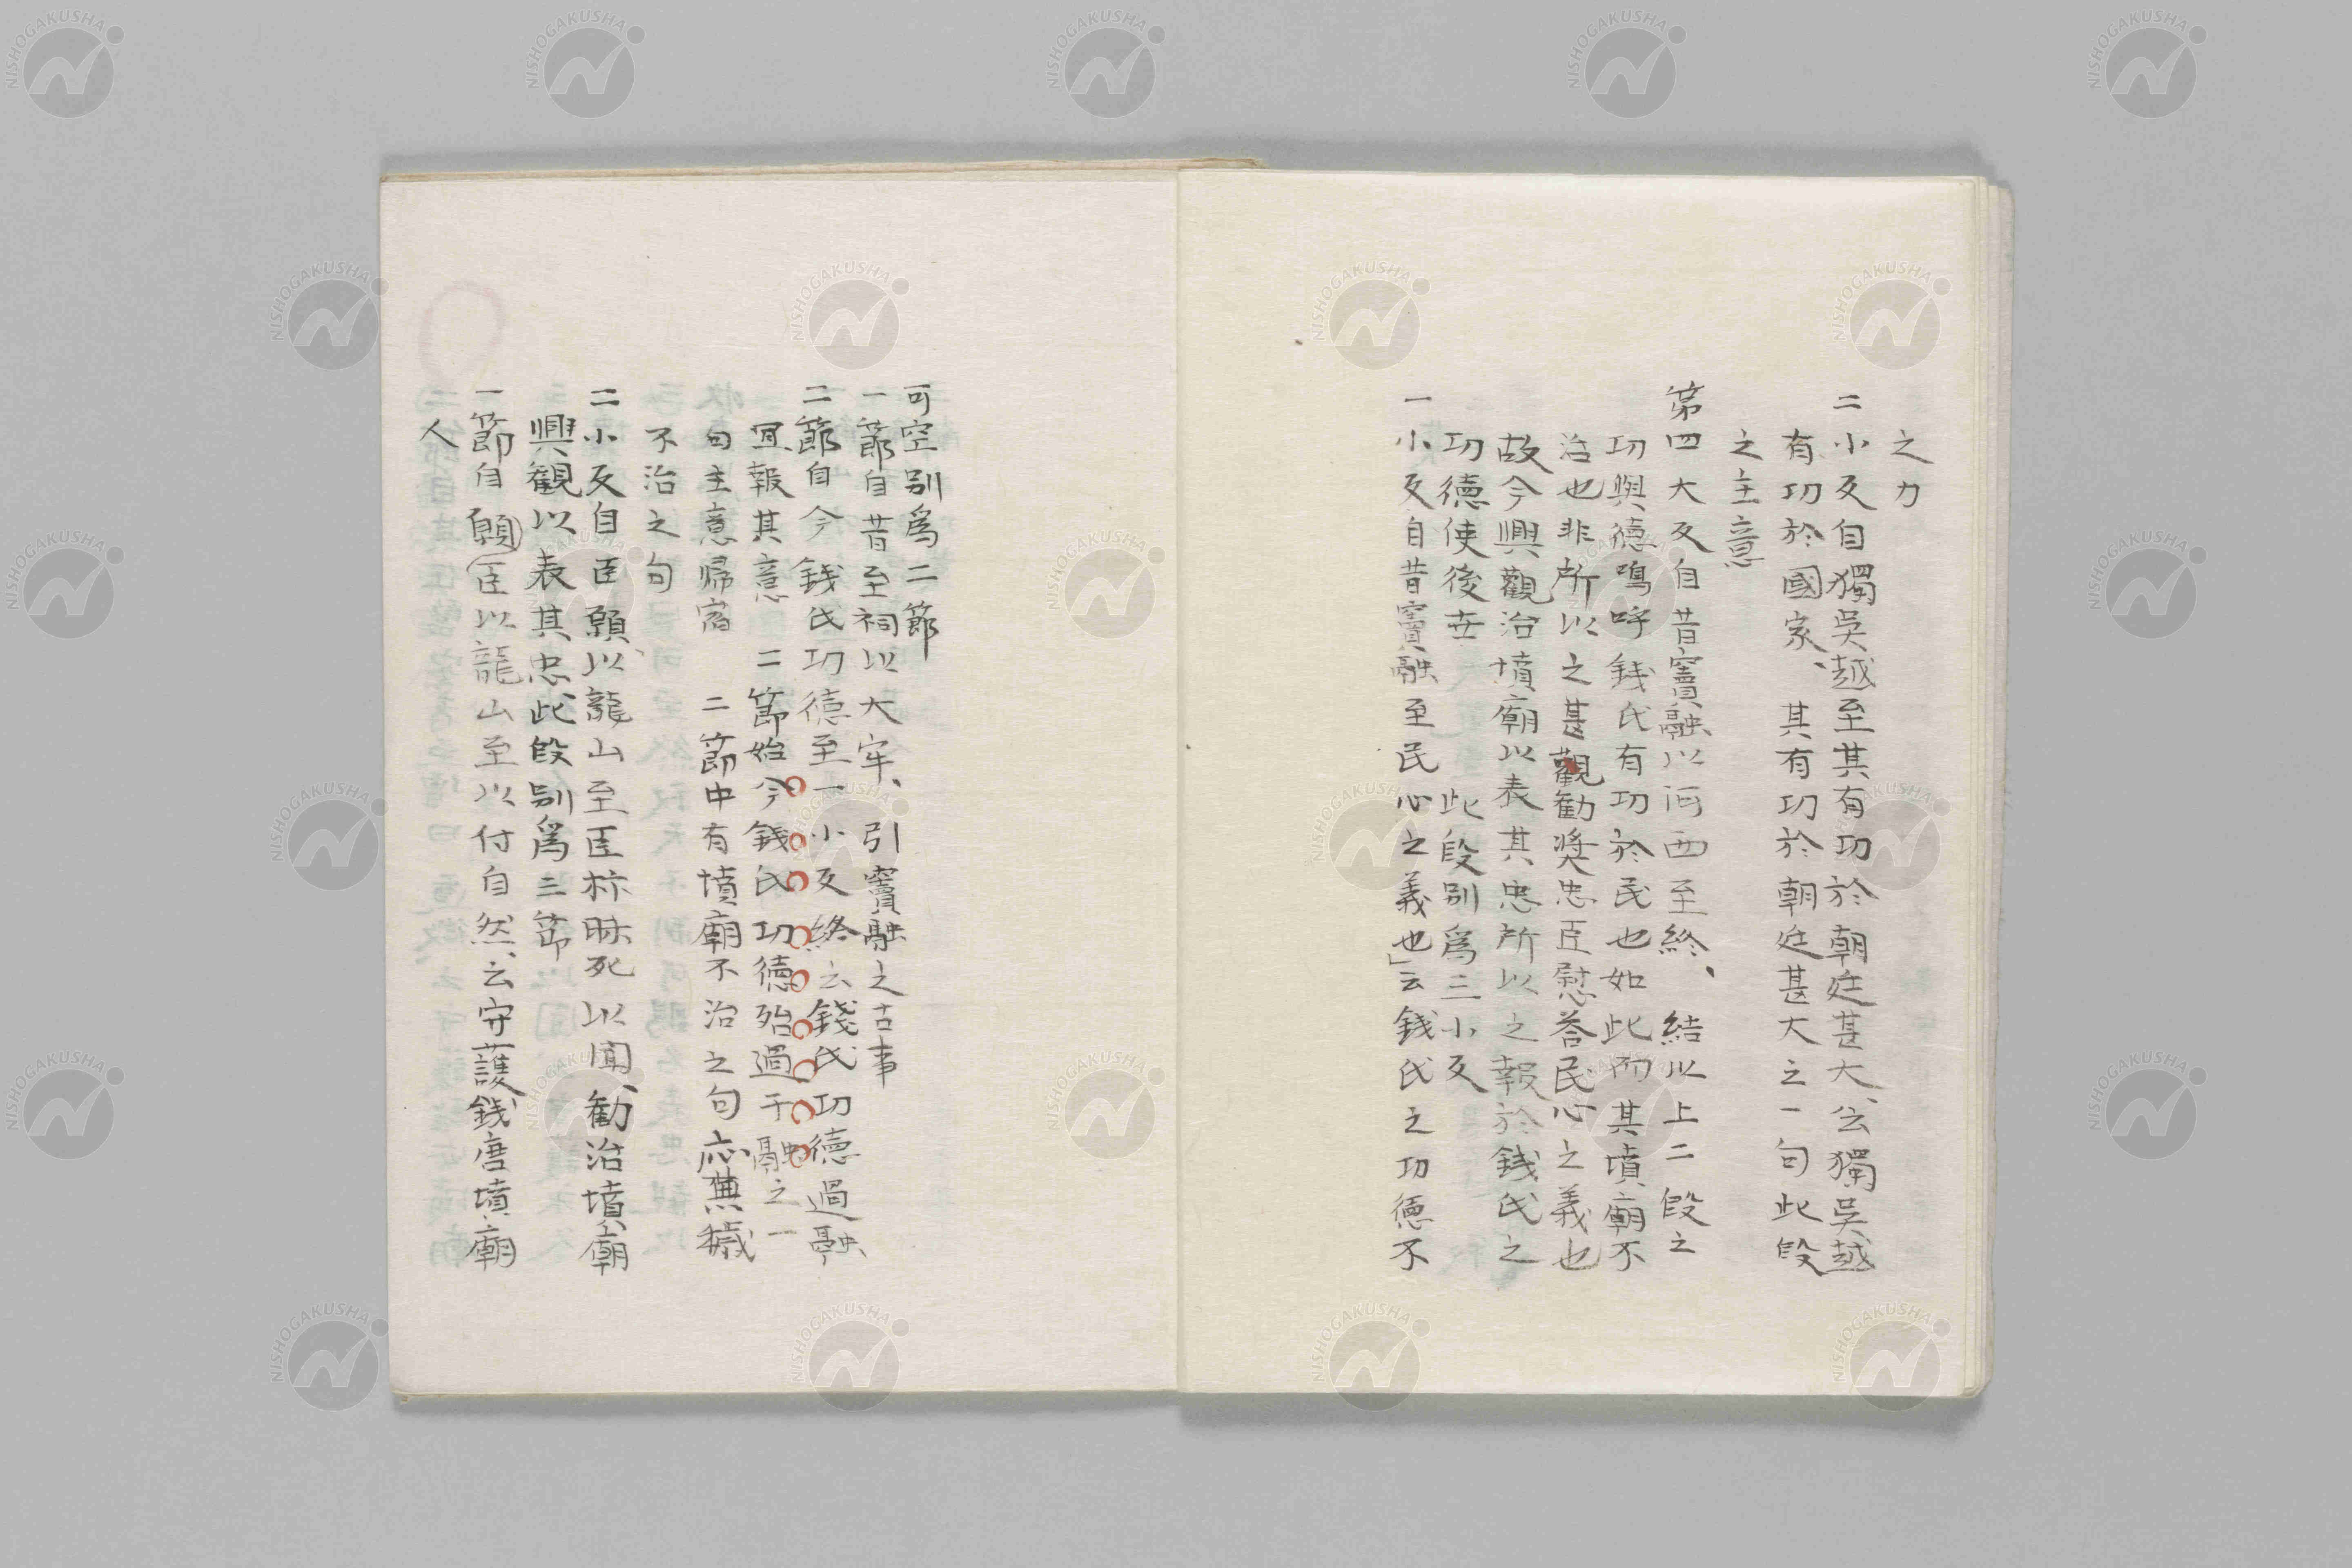 之力
二小反自獨吳越至其有功於朝廷甚大、云獨吳越
有功於國家、其有功於朝廷甚大之一句此段
之主意
第四大反自昔竇融以河西至終、結以上二段之
功與德鳴呼錢氏有功於民也如此而其墳廟不
治也非所以之甚觀勸奨忠臣慰荅民心之義也
故今興觀治墳廟以表其忠所以之報於錢氏之
功德使後世 此段别爲三小反
一小反自昔竇融至民心之義也」云錢氏之功德不
可空别爲二節
一節自昔至祠以大牢、引竇融之古事
二節自今錢氏功德至一小反終云錢氏功德過融
冝報其意 二節始今錢氏功德殆過于融之一
句主意歸宿 二節中有墳廟不治之句応蕪穢
不治之句
二小反自臣願以龍山至臣抃昧死以聞、勸治墳廟
興觀以表其忠、此段别爲三節
一節自願臣以龍山至以付自然、云守護錢唐墳廟
人
NISHOGAKUSHA